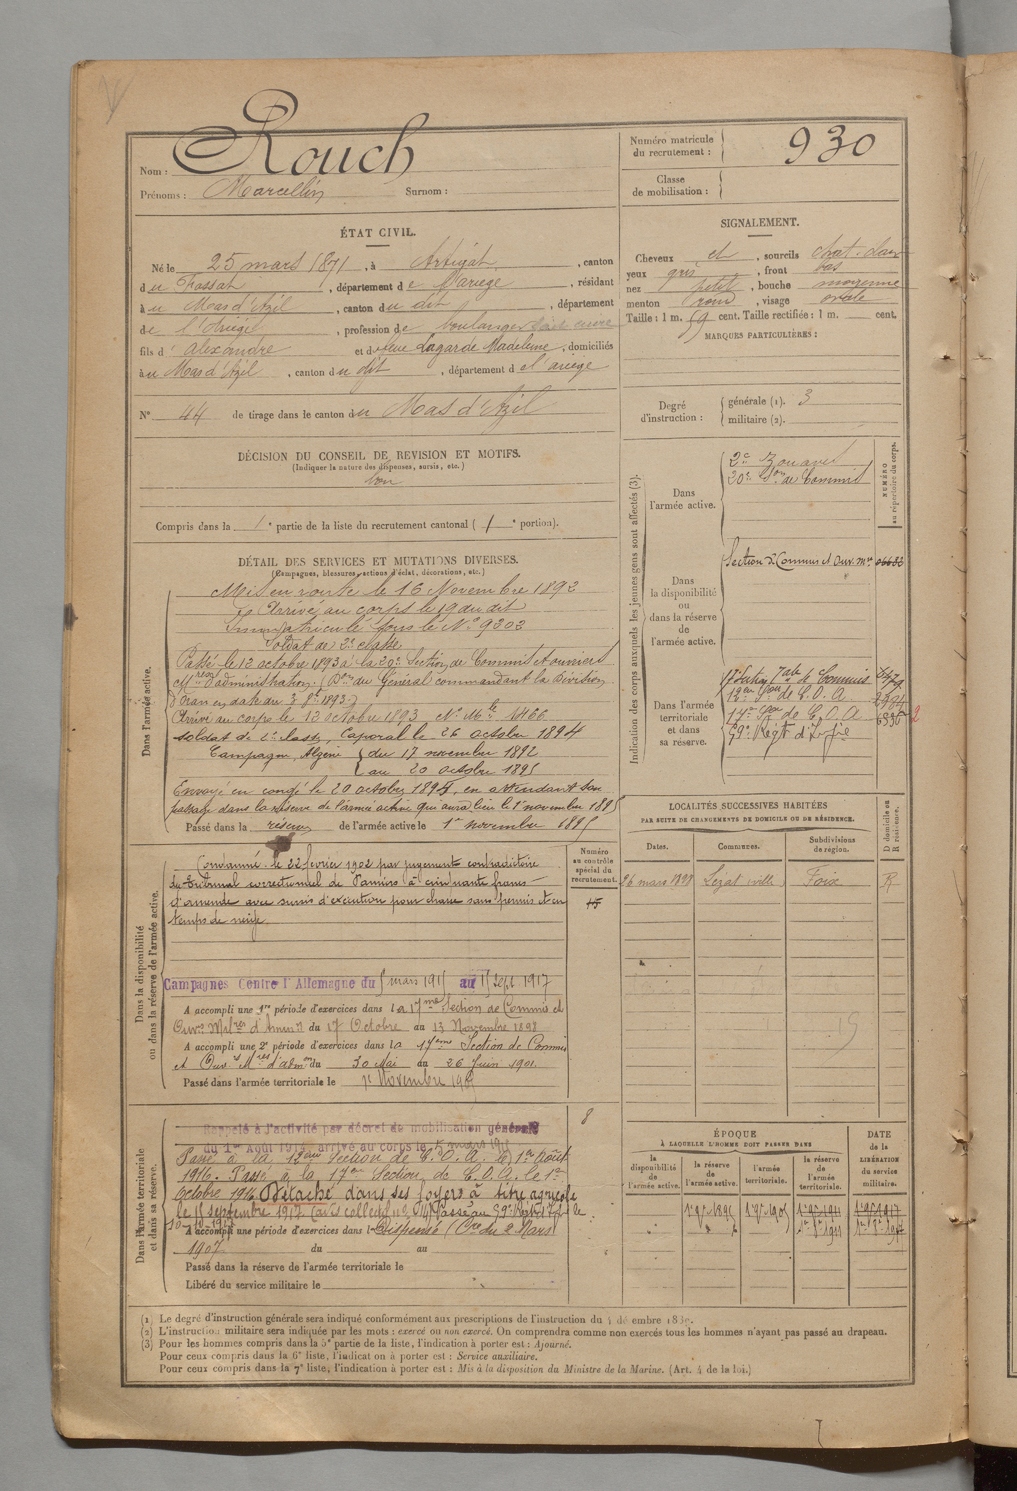 Nom : Rouch
Prénoms : Marcellin Surnom :
Numéro matricule du recrutement : 930
Classe de mobilisation :
ÉTAT CIVIL.
Né le 25 mars 1871, à Artigat, canton
du Fossat, département de l'Ariège, résidant
au Mas d'Azil, canton du dit, département
de l'Ariège, profession de boulanger
fils d' Alexandre et de feue Lagarde Madeleine, domiciliés
au Mas d'Azil, canton du dit, département de l'ariège
N° 44 de tirage dans le canton du Mas d'Azil
SIGNALEMENT.
Cheveux et, sourcils chat. clair
yeux gris, front bas
nez petit, bouche moyenne
menton rond, visage ovale
Taille : 1 m. 59 cent. Taille rectifiée : 1 m. cent.
MARQUES PARTICULIÈRES :
Degré d'instruction : générale (1). 3
militaire (2).
DÉCISION DU CONSEIL DE REVISION ET MOTIFS.
(Indiquer la nature des dispenses, sursis, etc.)
bon
Compris dans la 1e partie de la liste du recrutement cantonal ( 1e portion).
DÉTAIL DES SERVICES ET MUTATIONS DIVERSES.
(Campagnes, blessures, actions d'éclat, décorations, etc.)
Dans l'armée active.
Mis en route le 16 Novembre 1892
Arrivé au corps le 19 du dit
Immatriculé sous le N° 9303
Soldat de 2e classe
Passé le 12 octobre 1893 à la 20e Section de Commis et ouvriers
Mres d'administration. (Don du Général commandant la Division
d'Oran en date du 3 8bre 1893)
Arrivé au corps le 13 octobre 1893 N° Mle 1466
Soldat de 2e classe, Caporal le 26 octobre 1894
Campagne, Algérie du 17 novembre 1892
au 20 octobre 1895
Envoyé en congé le 20 octobre 1895, en attendant son
passage dans la réserve de l'armée active qui aura lieu le 1er novembre 1895
Passé dans la réserve de l'armée active le 1er novembre 1895
Indication des corps auxquels les jeunes gens sont affectés (3).
NUMÉRO au répertoire du corps.
Dans l'armée active.
2e Zouaves
20e Son de Commis
Dans la disponibilité ou dans la réserve de l'armée active.
Section de Commis et Ouv. Mres 06632
Dans l'armée territoriale et dans sa réserve.
17e Section Tale de Commis
12eme Son de C.O.A. 2904
17eme Son de C.O.A. 6336
59e Régt d'Infie
LOCALITÉS SUCCESSIVES HABITÉES
PAR SUITE DE CHANGEMENTS DE DOMICILE OU DE RÉSIDENCE.
Dates. Communes. Subdivisions de région. D domicile ou R résidence.
26 mars 1898 Lézat (ville) Foix R
Dans la disponibilité ou dans la réserve de l'armée active.
Numéro au contrôle spécial du recrutement.
15
Condamné le 22 février 1902 par jugement contradictoire
du tribunal correctionnel de Pamiers à cinquante francs
d'amende avec sursis d'exécution pour chasse sans permis et en
temps de neige.
Campagnes Contre l'Allemagne du 5 mars 1915 au 15 Sept. 1917
A accompli une 1re période d'exercices dans la 17me Section de Commis et
Ouvrs Milres d'Admin du 17 Octobre au 13 Novembre 1898
A accompli une 2e période d'exercices dans la 17eme Section de Commis
et Ouv. Mres d'admon du 30 Mai au 26 Juin 1901
Passé dans l'armée territoriale le 1er Novembre 1905
Dans l'armée territoriale et dans sa réserve.
8
Rappelé à l'activité par décret de mobilisation générale
du 1er Août 1914, arrivé au corps le 5 mars 1915
Passé à la 12eme Section de C.O.A. le 1er Août
1916. Passé à la 17eme Section de C.O.A. le 1er
Octobre 1916. Détaché dans ses foyers à titre agricole
le 15 septembre 1917 Passé au 59e Régt d'Infie le
10-10-1917
A accompli une période d'exercices dans l Dispensé (Cre du 2 Mars
1907 du au
Passé dans la réserve de l'armée territoriale le
Libéré du service militaire le
ÉPOQUE
À LAQUELLE L'HOMME DOIT PASSER DANS
la disponibilité de l'armée active. la réserve de l'armée active. l'armée territoriale. la réserve de l'armée territoriale.
DATE de la LIBÉRATION du service militaire.
1er 9bre 1895 1er 9bre 1905 1er 9bre 1911 1er 9bre 1917
(1) Le degré d'instruction générale sera indiqué conformément aux prescriptions de l'instruction du 4 décembre 1889.
(2) L'instruction militaire sera indiquée par les mots : exercé ou non exercé. On comprendra comme non exercés tous les hommes n'ayant pas passé au drapeau.
(3) Pour les hommes compris dans la 5e partie de la liste, l'indication à porter est : Ajourné.
Pour ceux compris dans la 6e liste, l'indication à porter est : Service auxiliaire.
Pour ceux compris dans la 7e liste, l'indication à porter est : Mis à la disposition du Ministre de la Marine. (Art. 4 de la loi.)